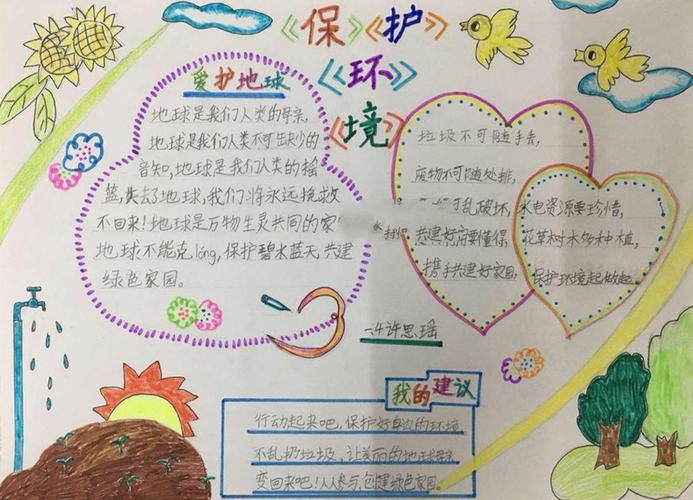 《保》《护》
《环》
《境》
爱护地球
地球是我们人类的母亲,
地球是我们人类不可缺少的
音知,地球是我们人类的摇
篮,失去地球,我们将永远挽救
不回来!地球是万物生灵共同的家
地球不能克lóng,保护碧水蓝天共建
绿色家园。
垃圾不可随手丢,
废物不可随处排,
可乱破坏,
共建好家要懂得,
携手共建好家园,
水电资源要珍惜,
花草树木多种植,
保护环境起做起。
一4许思瑶
我的建议
行动起来吧,保护好身边的环境
不乱扔垃圾,让美丽的地球母亲
变回来吧!人人参与,创建绿色家园。